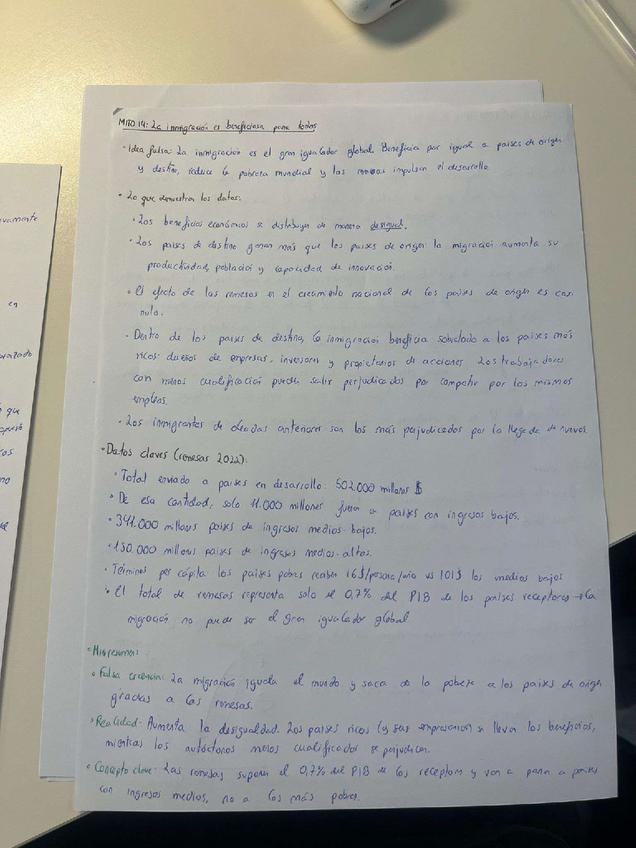 MITO 14: La inmigración es beneficiosa para todos
• Idea falsa: La inmigración es el gran igualador global. Beneficia por igual a países de origen
y destino, reduce la pobreza mundial y las remesas impulsan el desarrollo.
• Lo que demuestran los datos:
• Los beneficios económicos se distribuyen de manera desigual.
• Los países de destino ganan más que los países de origen: la migración aumenta su
productividad, población y capacidad de innovación.
• El efecto de las remesas en el crecimiento nacional de los países de origen es casi
nulo.
• Dentro de los países de destino, la inmigración beneficia sobretodo a los países más
ricos: dueños de empresas, inversores y propietarios de acciones. Los trabajadores
con menos cualificación pueden salir perjudicados por competir por los mismos
empleos.
• Los inmigrantes de décadas anteriores son los más perjudicados por la llegada de nuevos.
• Datos claves (remesas 2022):
• Total enviado a países en desarrollo: 502.000 millones $
• De esa cantidad, solo 11.000 millones fueron a países con ingresos bajos.
• 341.000 millones países de ingresos medios-bajos.
• 150.000 millones países de ingresos medios-altos.
• Términos per cápita: los países pobres reciben 16$/persona/año vs 101$ los medios bajos
• El total de remesas representa solo el 0,7% del PIB de los países receptores → la
migración no puede ser el gran igualador global
• Mi resumen:
• Falsa creencia: La migración iguala el mundo y saca de la pobreza a los países de origen
gracias a las remesas.
• Realidad: Aumenta la desigualdad. Los países ricos (y sus empresarios) se llevan los beneficios,
mientras los autóctonos menos cualificados se perjudican.
• Concepto clave: Las remesas suponen el 0,7% del PIB de los receptores y van a parar a países
con ingresos medios, no a los más pobres.
en